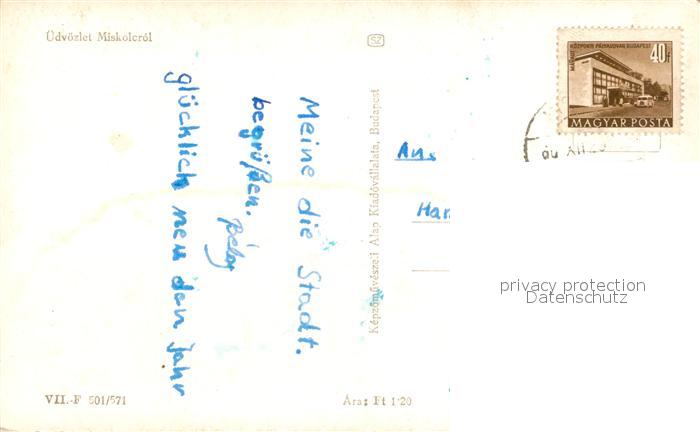 Üdvözlet Miskolcról
SZ
MÁVAUT KÖZPONTI PÁLYAUDVAR BUDAPEST
40f
MAGYAR POSTA
Meine die Stadt.
begrüßen.
glücklich neu den Jahr
Képzőművészeti Alap Kiadóvállalata, Budapest
Aus
Han
privacy protection
Datenschutz
VII.-F 501/571
Ára: Ft 1·20